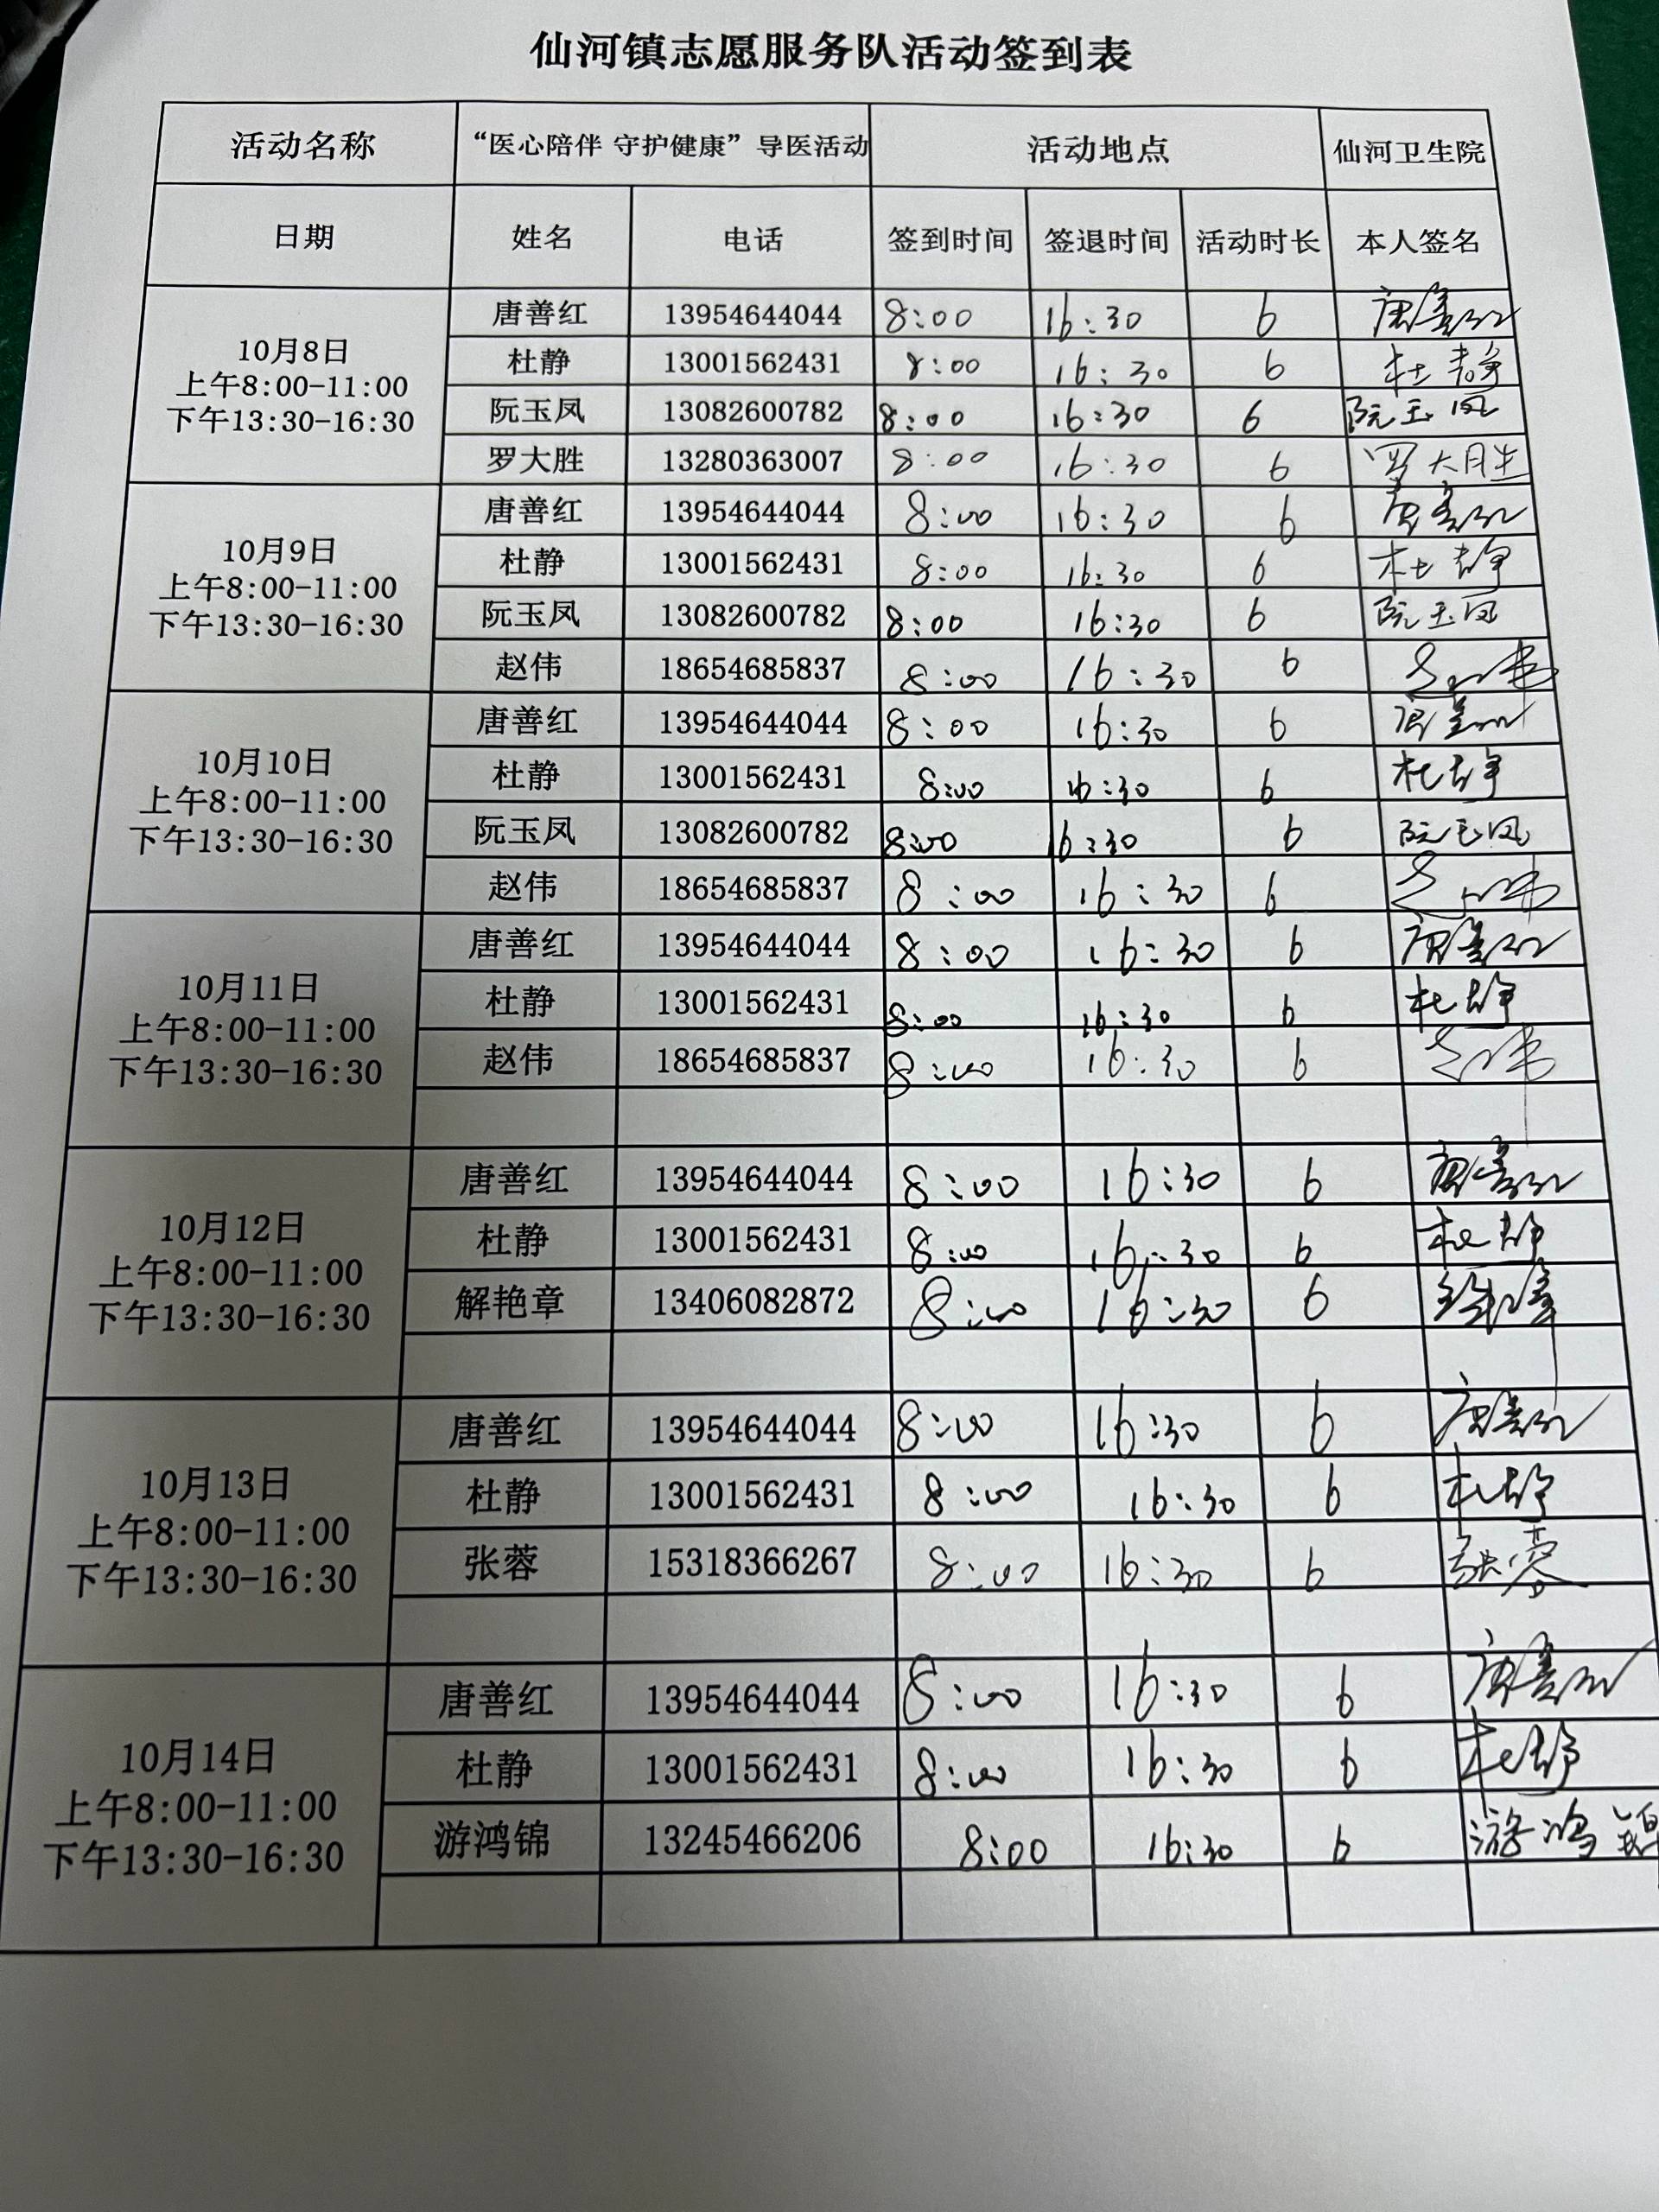 仙河镇志愿服务队活动签到表
活动名称 “医心陪伴 守护健康”导医活动 活动地点 仙河卫生院
日期 姓名 电话 签到时间 签退时间 活动时长 本人签名
10月8日
上午8:00-11:00
下午13:30-16:30
唐善红 13954644044 8:00 16:30 6 唐善红
杜静 13001562431 8:00 16:30 6 杜静
阮玉凤 13082600782 8:00 16:30 6 阮玉凤
罗大胜 13280363007 8:00 16:30 6 罗大胜
10月9日
上午8:00-11:00
下午13:30-16:30
唐善红 13954644044 8:00 16:30 6 唐善红
杜静 13001562431 8:00 16:30 6 杜静
阮玉凤 13082600782 8:00 16:30 6 阮玉凤
赵伟 18654685837 8:00 16:30 6 赵伟
10月10日
上午8:00-11:00
下午13:30-16:30
唐善红 13954644044 8:00 16:30 6 唐善红
杜静 13001562431 8:00 16:30 6 杜静
阮玉凤 13082600782 8:00 16:30 6 阮玉凤
赵伟 18654685837 8:00 16:30 6 赵伟
10月11日
上午8:00-11:00
下午13:30-16:30
唐善红 13954644044 8:00 16:30 6 唐善红
杜静 13001562431 8:00 16:30 6 杜静
赵伟 18654685837 8:00 16:30 6 赵伟
10月12日
上午8:00-11:00
下午13:30-16:30
唐善红 13954644044 8:00 16:30 6 唐善红
杜静 13001562431 8:00 16:30 6 杜静
解艳章 13406082872 8:00 16:30 6 解艳章
10月13日
上午8:00-11:00
下午13:30-16:30
唐善红 13954644044 8:00 16:30 6 唐善红
杜静 13001562431 8:00 16:30 6 杜静
张蓉 15318366267 8:00 16:30 6 张蓉
10月14日
上午8:00-11:00
下午13:30-16:30
唐善红 13954644044 8:00 16:30 6 唐善红
杜静 13001562431 8:00 16:30 6 杜静
游鸿锦 13245466206 8:00 16:30 6 游鸿锦